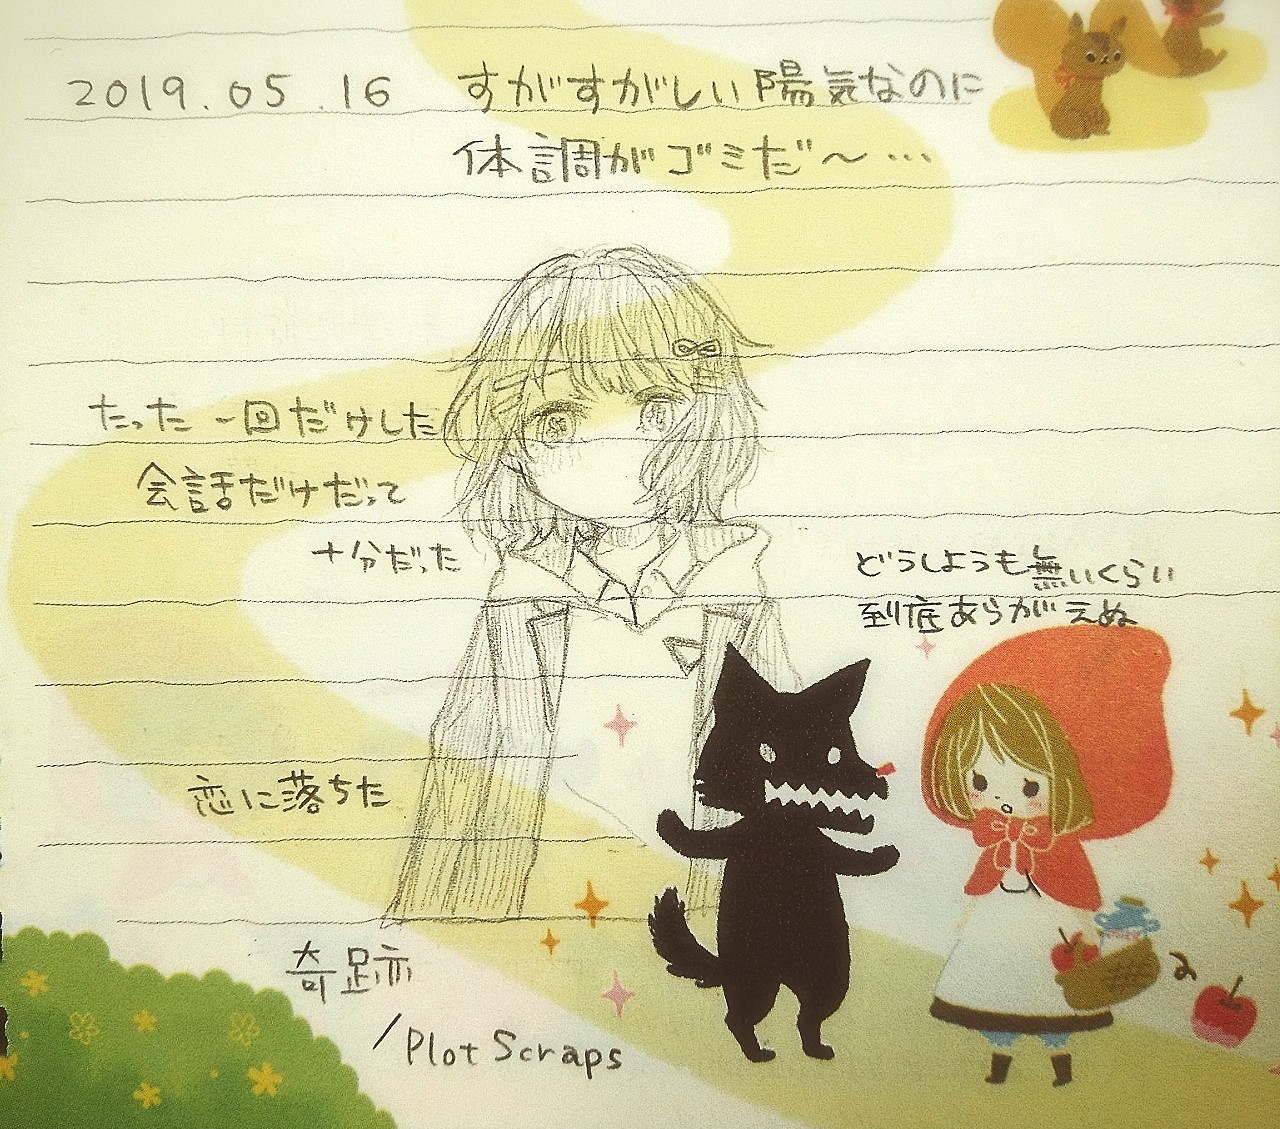 2019.05.16 すがすがしい陽気なのに
体調がゴミだ〜…
たった一回だけした
会話だけだって
十分だった
どうしようも無いくらい
到底あらがえぬ
恋に落ちた
奇跡
/Plot Scraps